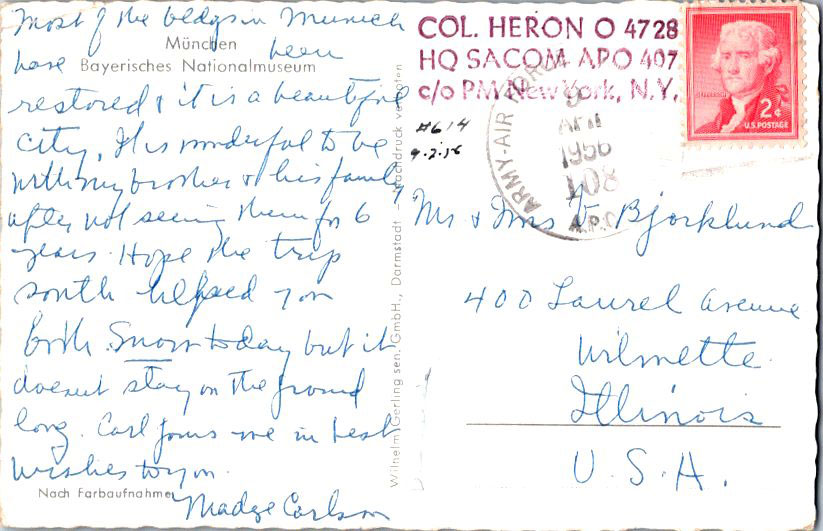 Most of the bldgs in Munich
München
have been
Bayerisches Nationalmuseum
restored & it is a beautiful
city. It is wonderful to be
with my brother & his family
after not seeing them for 6
years. Hope the trip
south helped you
both. Snow today but it
doesn't stay on the ground
long. Carl joins me in best
wishes to you.
Nach Farbaufnahme
Madge Carlson
Wilhelm Gerling sen. GmbH., Darmstadt Nachdruck verboten
COL. HERON O 4728
HQ SACOM APO 407
c/o PM New York, N.Y.
#614
4-2-56
ARMY-AIR FORCE
APR
1956
108
A.P.O.
JEFFERSON
2¢
U.S. POSTAGE
Mr & Mrs V. Bjorklund
400 Laurel Avenue
Wilmette
Illinois
U.S.A.